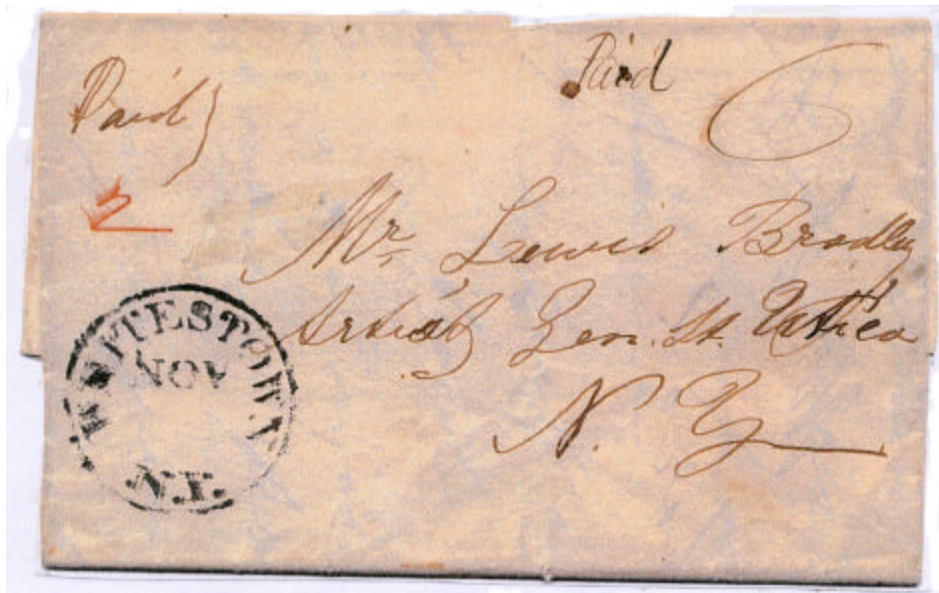 Paid
Paid 6
Mr. Lewis Bradley
Artist Gen. St. Utica
N. Y
WHITESTOWN
NOV
N.Y.